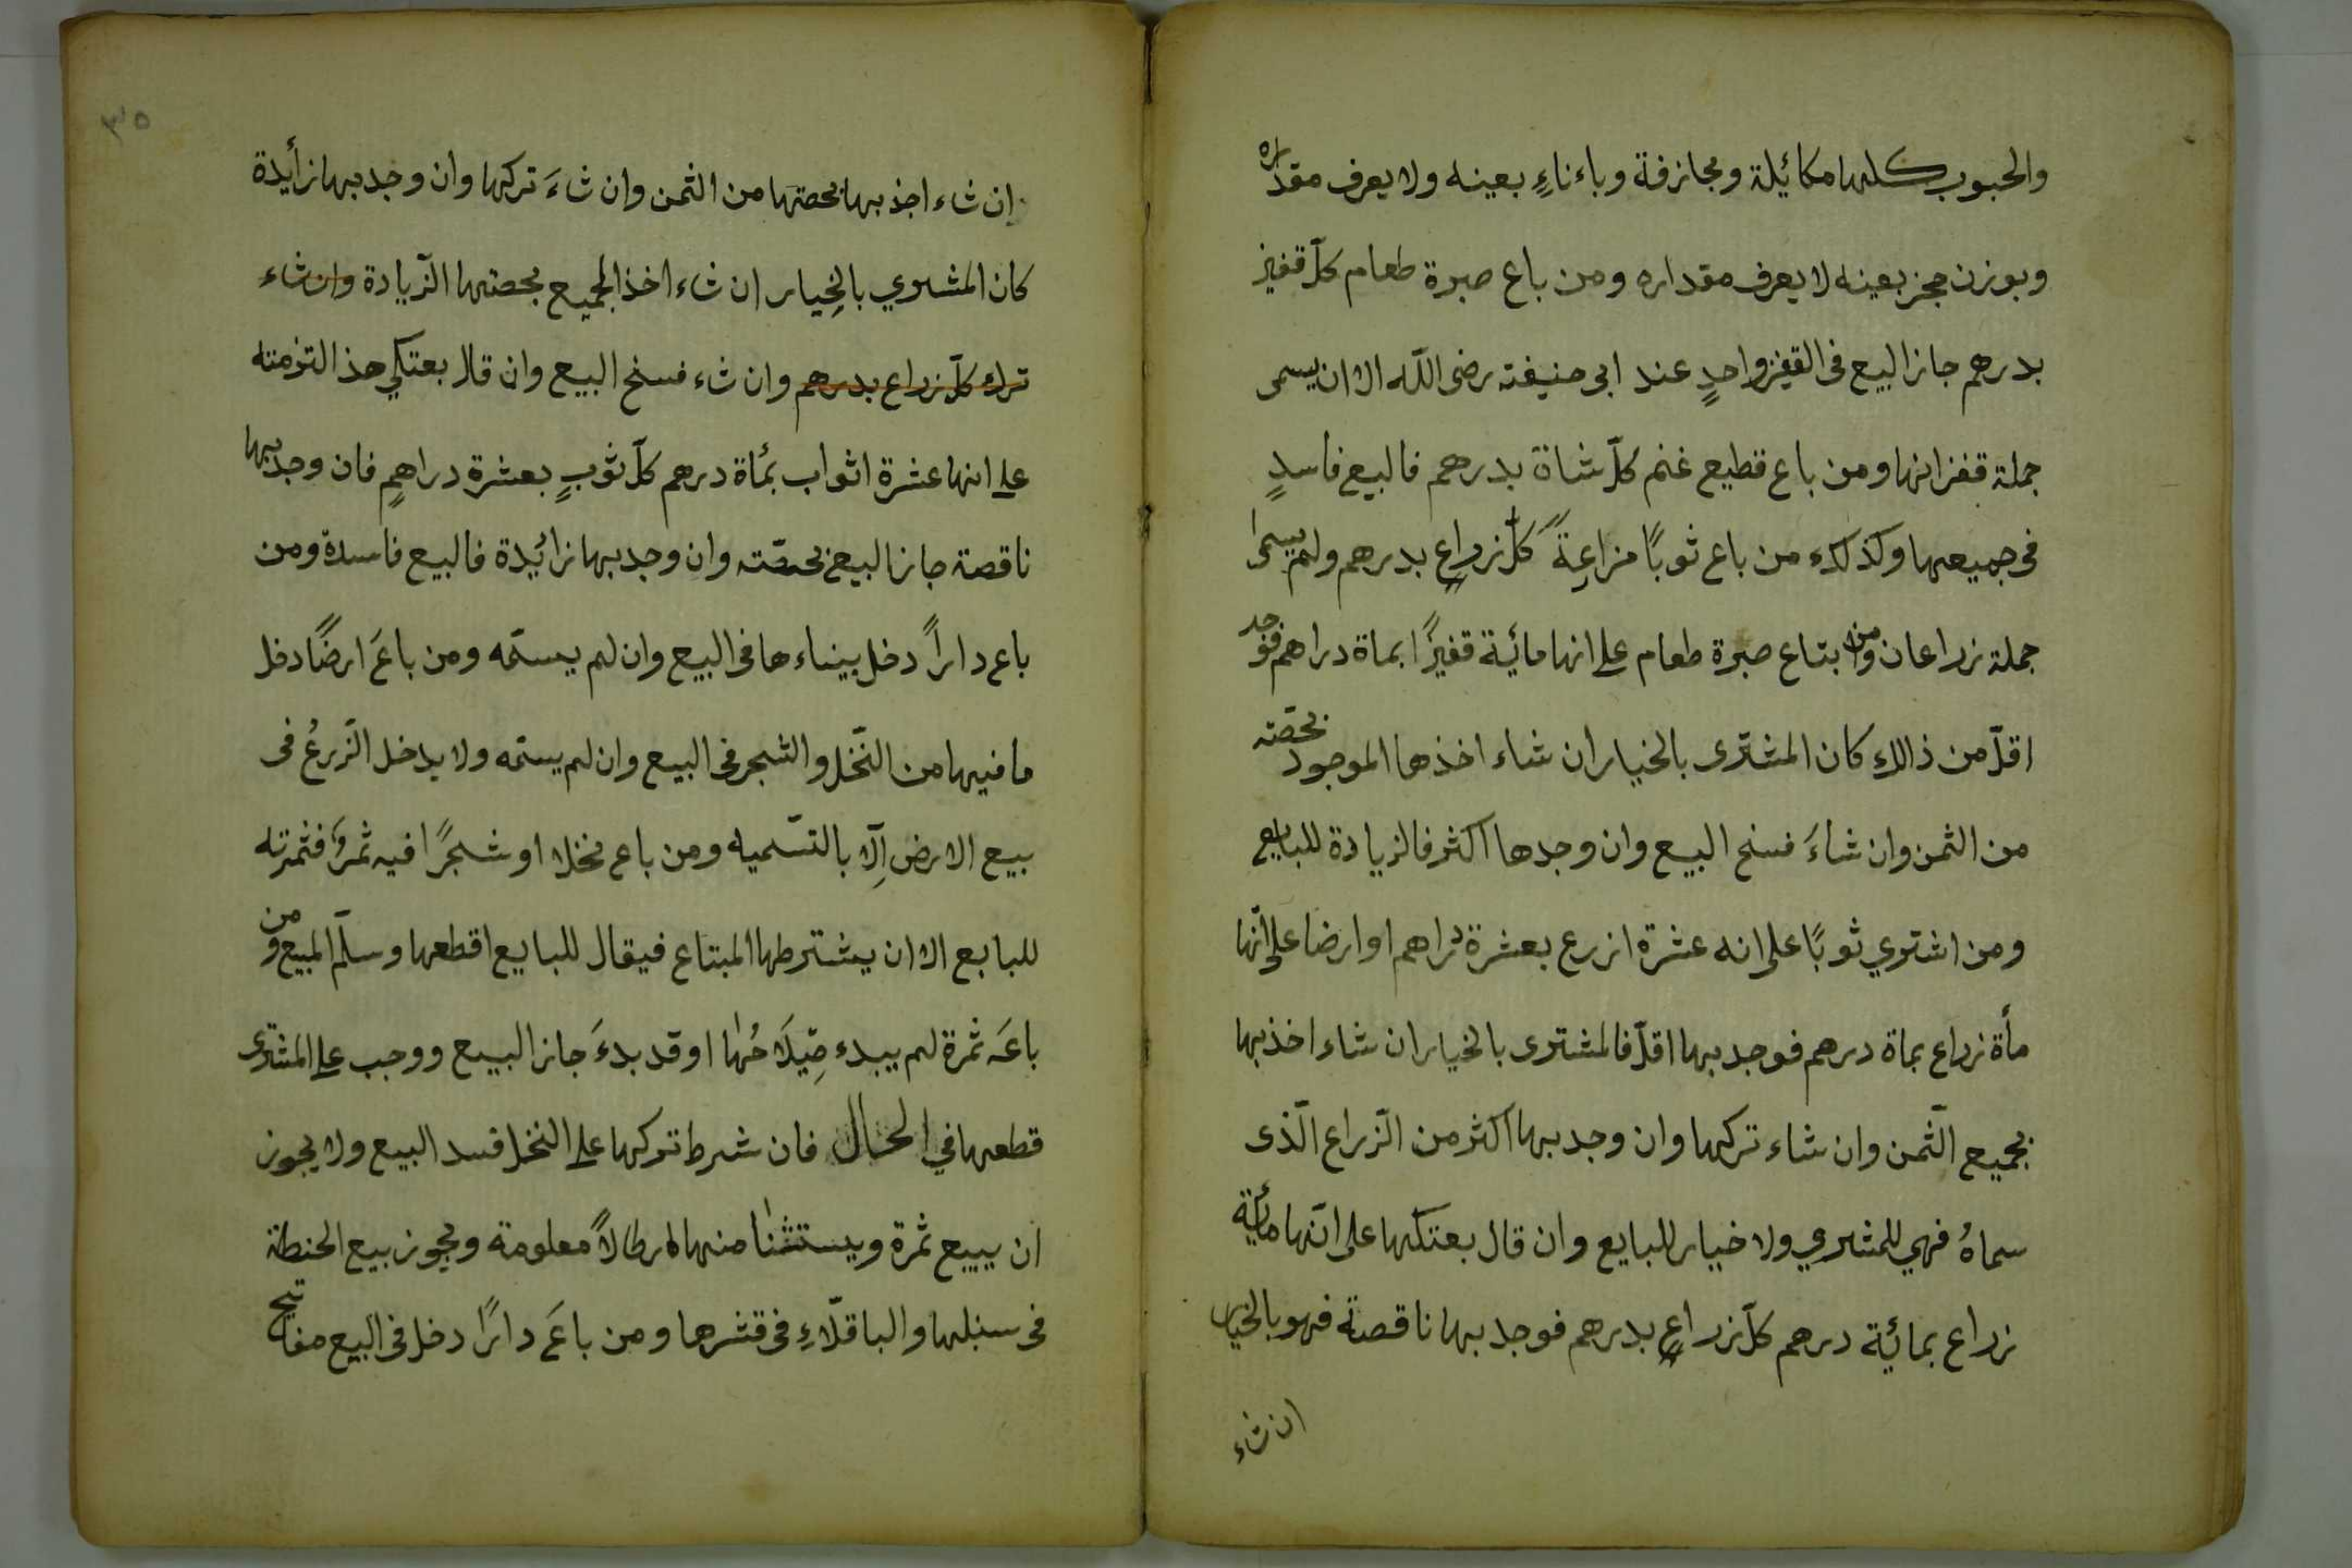 والحبوب كلها مكائيلة ومجازفة وباءناءٍ بعينه ولا يعرف مقداره
وبوزن حجز بعينه لا يعرف مقداره ومن باع صبرة طعام كلّ قفيز
بدرهم جاز البيع فى القفيز واحدٍ عند ابى حنيفته رضى اللّه الا ان يسمى
جملة قفزانها ومن باع قطيع غنم كلّ شاة بدرهم فالبيع فاسدٍ
فى جميعها وكذلك من باع ثوبًا مزاعةً كلّ زراعٍ بدرهم ولم يسمىٰ
جملة زراعان ومن ابتاع صبرة طعام على انها مائية قفيزًا بماة دراهم فوجد
اقلّ من ذالك كان المشترى بالخيار ان شاء اخذها الموجود بحصّته
من الثمن وان شاءَ فسخ البيع وان وجدها اكثر فالزيادة للبايع
ومن اشتري ثوبًا على انه عشرة ازرع بعشرة دراهم او ارضا على انّها
مأة زراع بماة درهم فوجد بها اقلّ فالمشترى بالخيار ان شاء اخذ بها
بجميع الثّمن وان شاء تركها وان وجد بها اكثر من الزّراع الّذى
سماهُ فهي للمشري ولا خيار للبايع وان قال بعتكها على انّها مائية
زراع بمائية درهم كلّ زراعٍ بدرهم فوجد بها ناقصة فهو بالخيار
ان شاء
٣٥
ان شاء اخذ بها بحصتها من الثمن وان شاءَ تركها وان وجد بها زأيدة
كان المشري بالخِيار ان شاء اخذ الجميع بحصتها الزّيادة وان شاء
ترك كلّ زراع بدرهم وان شاء فسخ البيع وان قال بعتكي هذ التزمته
على انها عشرة اثواب بمأة درهم كلّ ثوبٍ بعشرة دراهمٍ فان وجد بها
ناقصة جاز البيع بحصّته وان وجد بها زائيدة فالبيع فاسدة ومن
باع داراً دخل بيناءها فى البيع وان لم يسمّه ومن باعَ ارضًا دخل
ما فيها من النّخل والشجر فى البيع وان لم يسمّه ولا يدخل الزّرعُ فى
بيع الارض اِلّا بالتسّميه ومن باع نخلا او شجرًا فيه ثمرَ فثمرته
للبايع الا ان يشترطها المبتاع فيقال للبايع اقطعها وسلّم المبيع ومن
باعَه ثمرة لم يبدء صِيلَاحُها او قد بدءَ جاز البيع ووجب على المشترى
قطعها في الحال فان شرط تركها على النخل فسد البيع ولا يجوز
ان يبيع ثمرة ويستثنا منها ارطالاً معلومة ويجوز بيع الحنطة
فى سنبلها والباقلّاءِ فى قشرها ومن باعَ دارًا دخل فى البيع مفاتيح